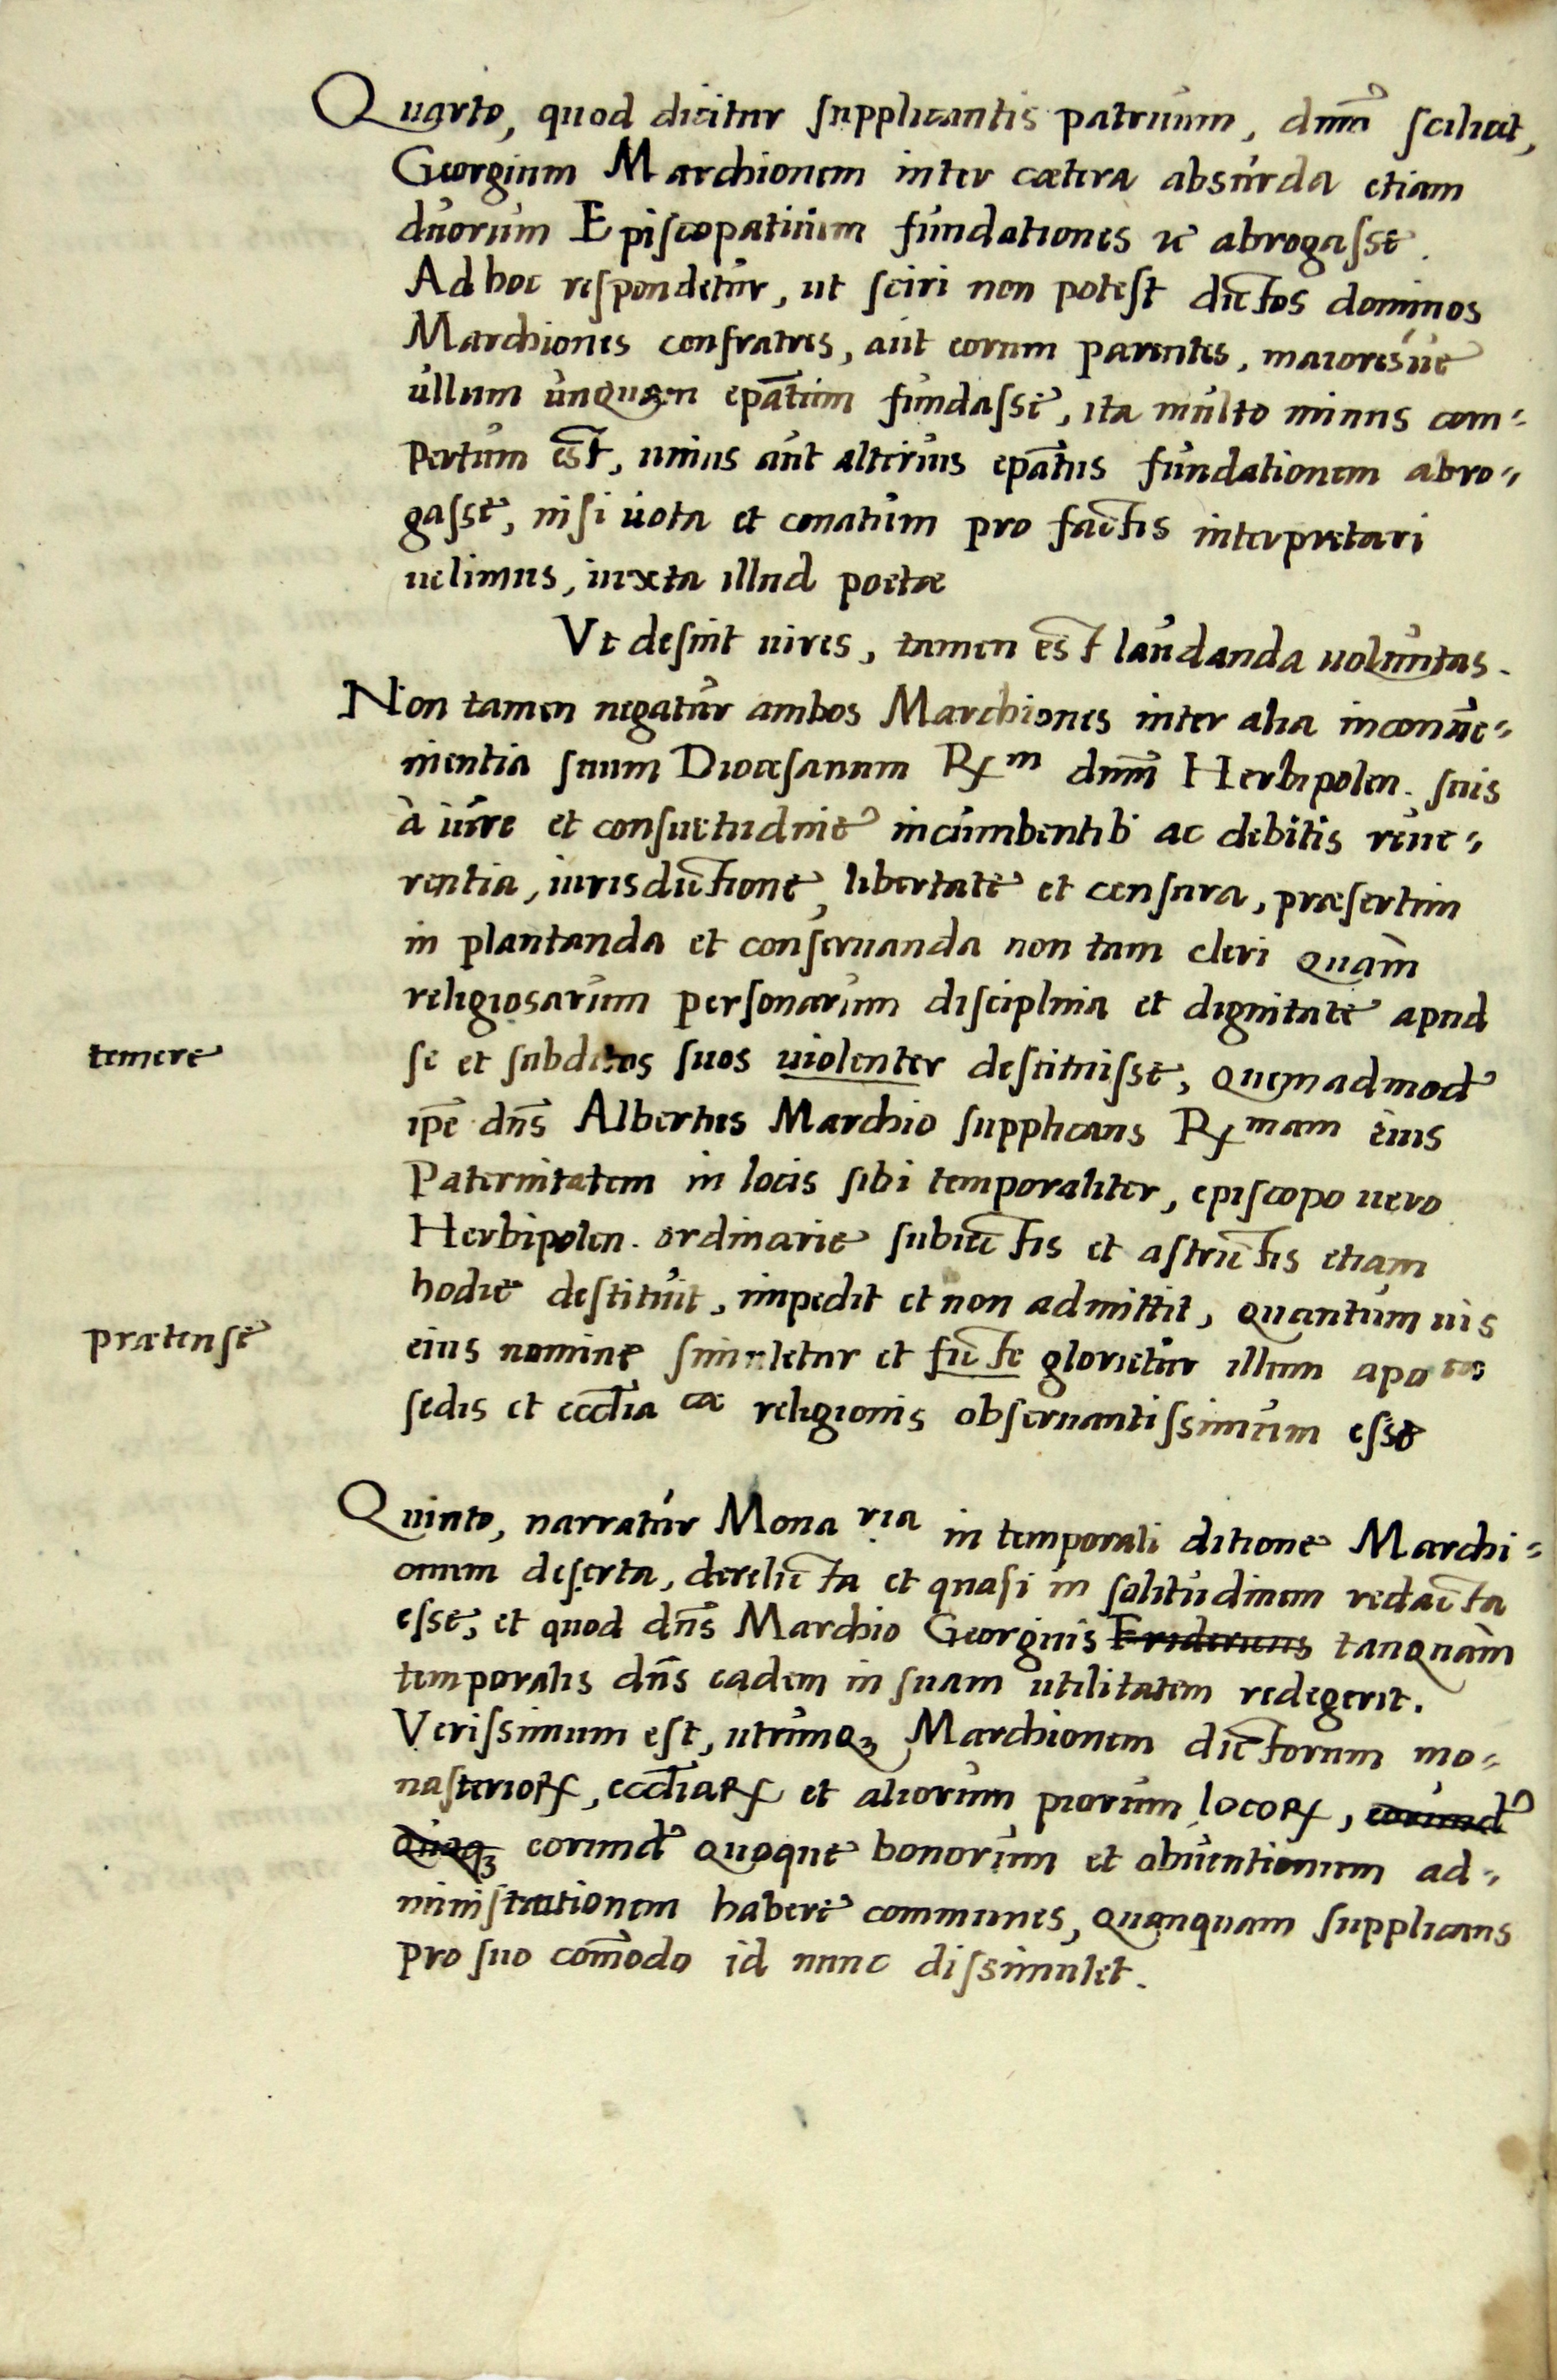 Quarto, quod dicitur supplicantis patruum, dnm̄ scilicet,
Georgium Marchionem inter cætera absurda etiam
duorum Episcopatuum fundationes &c abrogasse.
Ad hoc respondetur, ut sciri non potest dictos dominos
Marchiones confratres, aut eorum parentes, maioresúe
ullum unquam epāt̄um fundasse, ita multo minus com=
pertum est, unius aut alterius epāt̄us fundationem abro=
gasse, nisi uota et conatum pro factis interpretari
uelimus, iuxta illud poetæ
Vt desint uires, tamen est laudanda uoluntas.
Non tamen negatur ambos Marchiones inter alia inconue=
nientia suum Diocæsanum R̃ᵐ dnm̄ Herbipolen. suis
à iure et consuetudine incumbentib' ac debitis reue=
rentia, iurisdictione, libertate et censura, præsertim
in plantanda et conseruanda non tam cleri quàm
religiosarum personarum disciplina et dignitate apud
temere
se et subditos suos uiolenter destituisse, quemadmod'
ip̄e dn̄s Albertus Marchio supplicans R̃ᵐᵃᵐ eius
Paternitatem in locis sibi temporaliter, episcopo uero
Herbipolen. ordinarie subiectis et astrictis etiam
hodie destituit, impedit et non admittit, quantumuis
prætense
eius nomine simuletur et ficte glorietur illum apo ᶜᵃᵉ
sedis et eccl̄ia ᶜᵃᵉ religionis obseruantissimum esse
Quinto, narratur Mona ʳⁱᵃ in temporali ditione Marchi=
onum deserta, derelicta et quasi in solitudinem redacta
esse, et quod dn̄s Marchio Georgius Fridericus tanquàm
temporalis dn̄s eadem in suam utilitatem redegerit.
Verissimum est, utrumqꝫ Marchionem dictorum mo=
nasterioꝝ, eccl̄iaꝝ et aliorum piorum locoꝝ, eorund'
quoqꝫ eorund' quoque bonorum et obuentionum ad=
ministrationem habere communes, quanquam supplicans
pro suo com̄odo id nunc dissimulet.